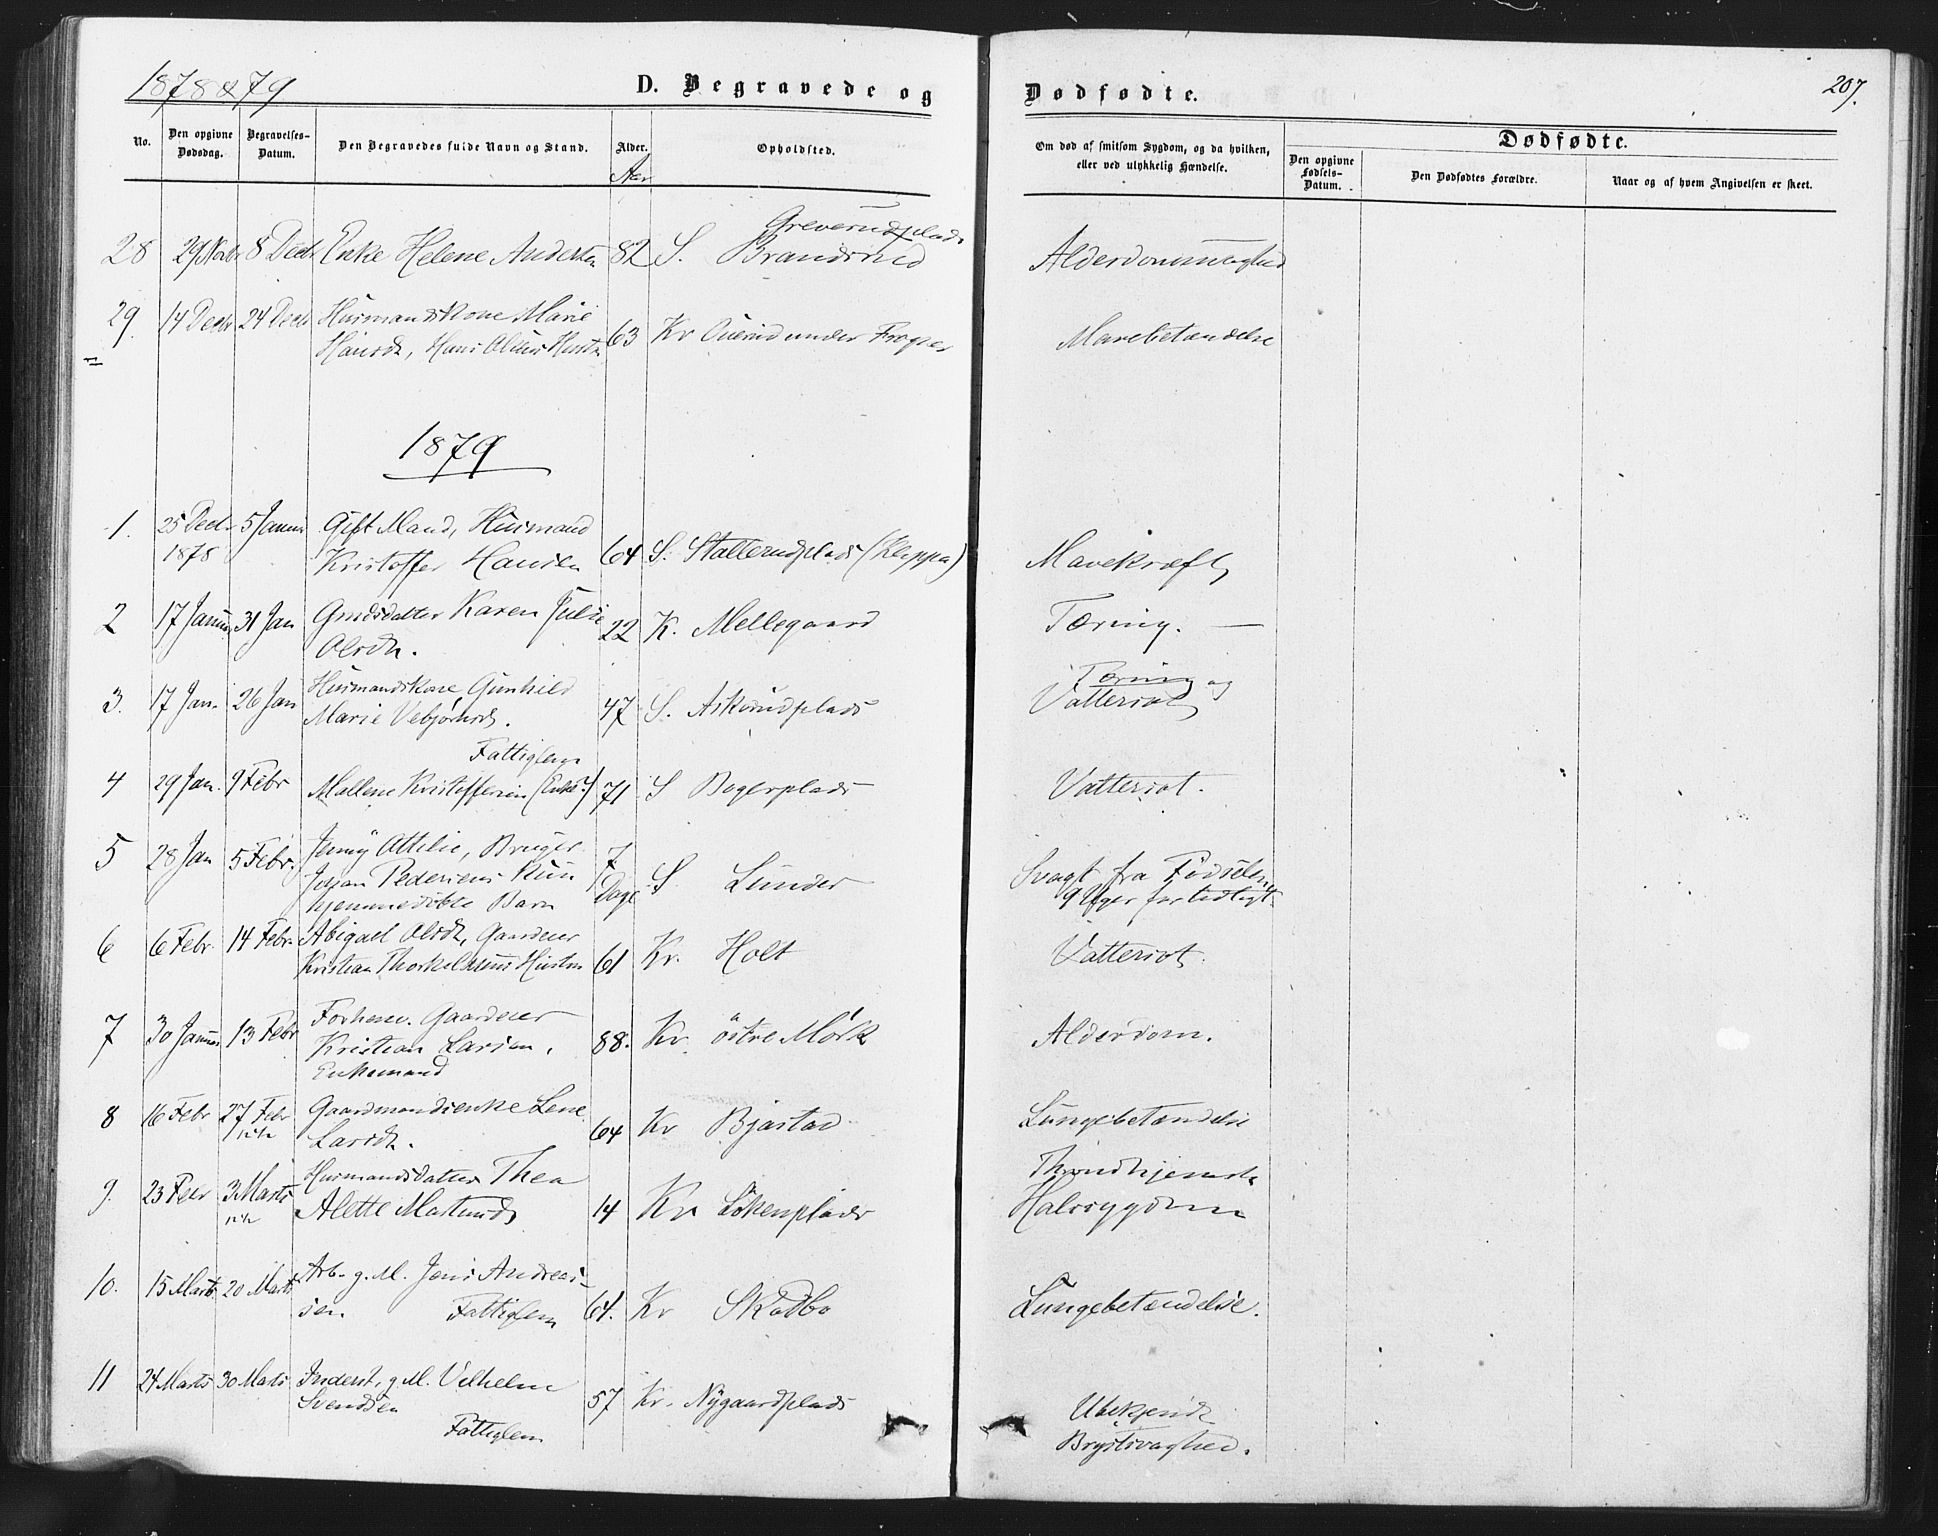 1878 & 79
D. Begravede og Dødfødte.
207.
No.
Den opgivne Dødsdag.
Begravelses-Datum.
Den Begravedes fulde Navn og Stand.
Alder.
Aar
Opholdsted.
Om død af smitsom Sygdom, og da hvilken, eller ved ulykkelig Hændelse.
Dødfødte.
Den opgivne Fødsels-Datum.
Den Dødfødtes Forældre.
Naar og af hvem Angivelsen er skeet.
Greverudplads
28 29 Novbr 8 Decbr Enke Helene Andersen 82 S. Brandsrud
29. 14 Decbr 24 Decbr Husmandskone Marie
Hansdt, Hans Olsens Hustru 63 Kr under Frogner Mavebetændelse
1879
1. 25 Decbr 5 Januar Gift Mand, Husmand
1878 Kristoffer Hansen 64 S. Stallerudplads (Kleppa) Mavekræft
2 17 Januar 31 Jan Grdsdatter Karen Julie
Olsdt. 22 K. Mellegaard Tæring.
3. 17 Jan. 26 Jan Husmandskone Gunhild
Marie Vebjørnsdt. 47 S. Askerudplads Tæring og
Vattersot
Fattiglem
4 29 Jan. 9 Febr Mallene Kristoffersen (Enke?) 71 S Bogerplads Vattersot.
5 28 Jan 5 Febr. Jenny Attilie, Bruger
Johan Pedersens Kun
hjemmedøbte Barn 7 Dage S Lunder Svagt fra Fødselen,
9 Uger for tidligt.
6 6 Febr. 14 Febr. Abigael Olsdt, Gaardeier
Kristian Thorkelsens Hustru 61 Kr. Holt Vattersot.
7 30 Januar 13 Febr Forhenv. Gaardeier
Kristian Larsen,
Enkemand 88. Kr. östre Mörk Alderdom.
8 16 Febr 27 Febr Gaardmandsenke Lene
Larsdt. 64 Kr Bjastad Lungebetændelse
9. 23 Febr 3 Marts Husmandsdatter Thea
Alette 14 Kr Lökenplads Throndhjemske
Halssygdom
10. 15 Marts 20 Marts Arb. g. M. Jens Andreas-
sen. Fattiglem 64. Kr Skodbo Lungebetændelse.
11 24 Marts 30 Marts Inderst, g M. Vilhelm
Svendsen
Fattiglem 57 Kr. Nygaardplads Ubekjendt
Brystsvaghed.